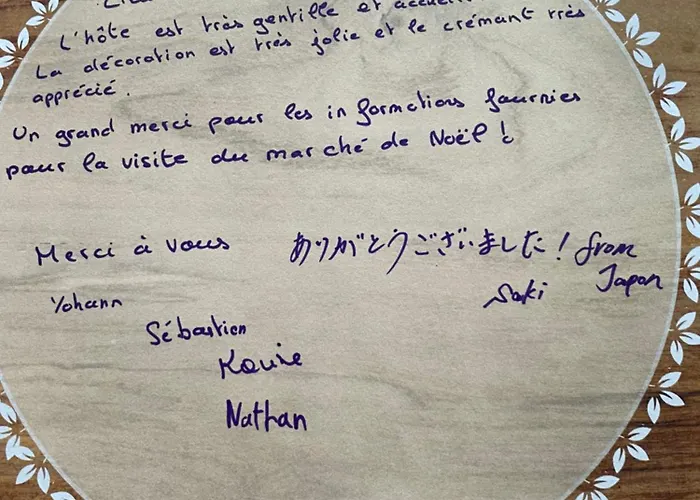 L'hôte est très gentille et
La décoration est très jolie et le crémant très
apprécié.
Un grand merci pour les informations fournies
pour la visite du marché de Noël !
Merci à vous
ありがとうございました! from
Japan
Saki
Yohann
Sébastien
Nathan